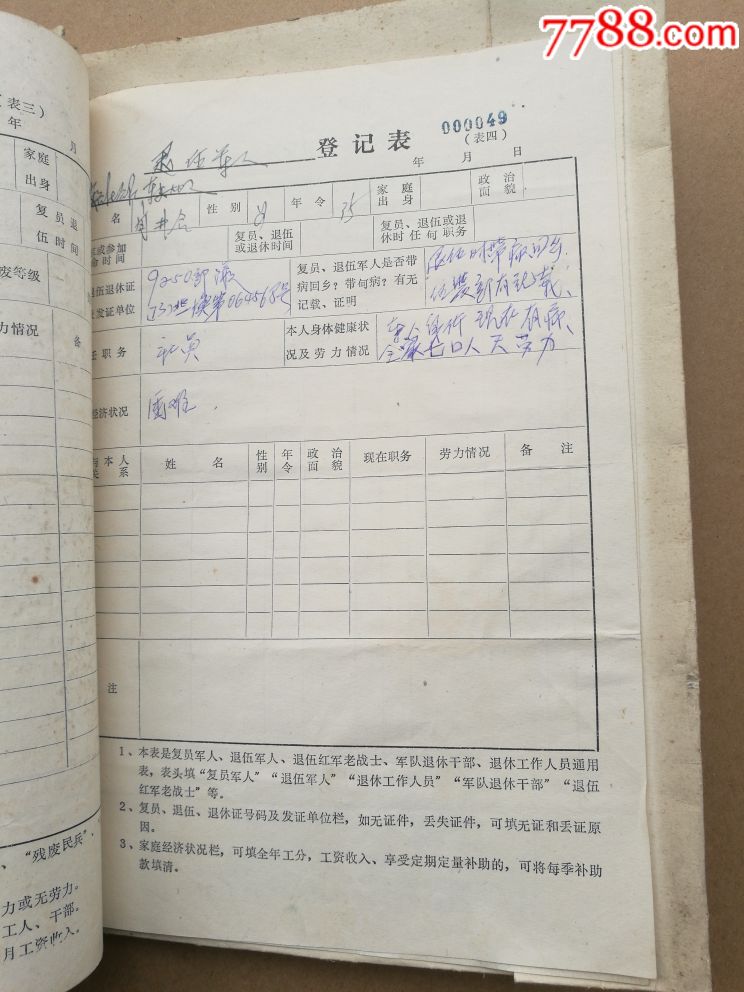 7788.com
表三）
年 月
家庭
出身
复员退
伍时间
废等级
力情况 备
“残废民兵”，
力或无劳力。
工人、干部。
月工资收入。
000049
退伍军人 登记表 （表四）
年 月 日
名 性别 男 年令 35 家庭出身 政治面貌
或参加
命时间 复员、退伍或退休时间 复员、退伍或退休时任何职务
退伍退休证
发证单位 9250部
字第064568号 复员、退伍军人是否带病回乡？带甸病？有无记载、证明 退伍时带病回乡
伍 部有记载、
任职务 社员 本人身体健康状况及劳力情况 本人 现在有病，
全家七口人 无劳力
经济状况 困难．
与本人关系 姓名 性别 年令 政治面貌 现在职务 劳力情况 备注
注
1、本表是复员军人、退伍军人、退伍红军老战士、军队退休干部、退休工作人员通用
表，表头填“复员军人”“退伍军人”“退休工作人员”“军队退休干部”“退伍
红军老战士”等。
2、复员、退伍、退休证号码及发证单位栏，如无证件，丢失证件，可填无证和丢证原
因。
3、家庭经济状况栏，可填全年工分，工资收入、享受定期定量补助的，可将每季补助
款填清。